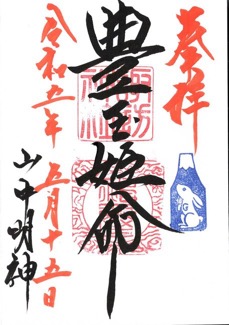 奉拝
豊玉姫命
令和五年 五月十五日
山中明神